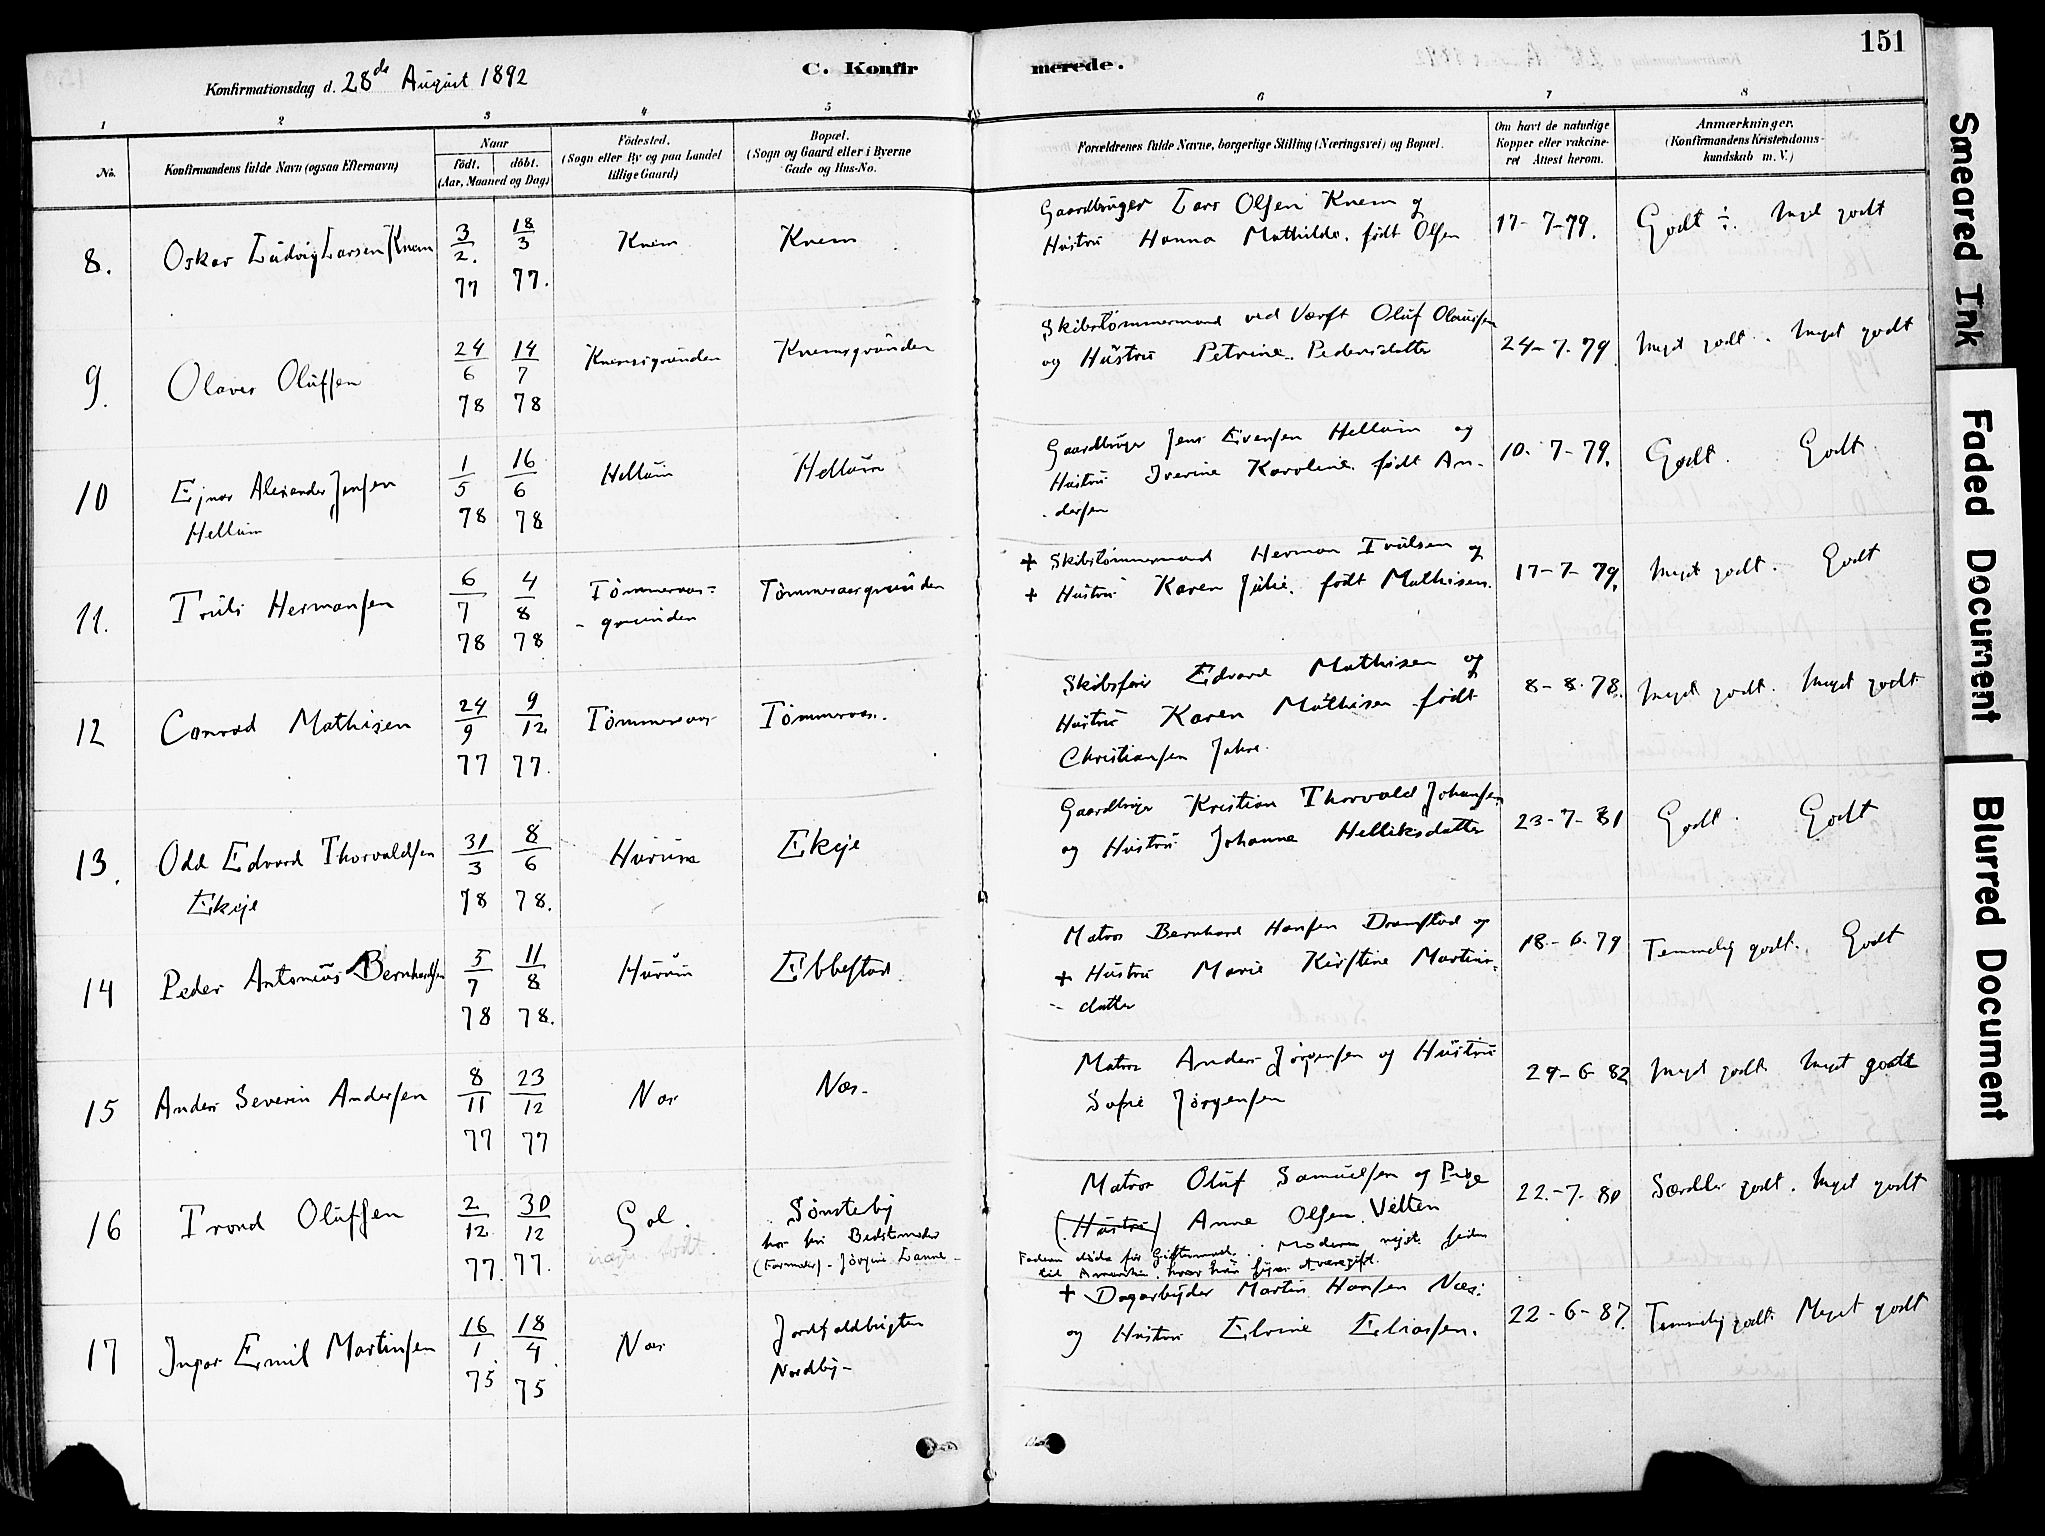 151
Konfirmationsdag d. 28de August 1892
C. Konfirmerede.
1 2 3 4 5 6 7 8
No.
Konfirmandens fulde Navn (ogsaa Efternavn)
Naar
födt. döbt.
(Aar, Maaned og Dag)
Födested.
(Sogn eller By og paa Landet
tillige Gaard)
Bopæl.
(Sogn og Gaard eller i Byerne
Gade og Hus-No.
Forældrenes fulde Navne, borgerlige Stilling (Næringsvei) og Bopæl.
Om havt de naturlige
Kopper eller vakcine-
ret Attest herom.
Anmærkninger.
(Konfirmandens Kristendoms-
kundskab m. V.)
8. Oskar Ludvig Larsen Knem
3/2 77 18/3 77.
Knem
Knem
Gaardbruger Lars Olsen Knem og
Hustru Hanna Mathilde født Olsen
17-7-79.
Godt ÷. Meget godt
9. Olaves Olufsen
24/6 78 14/7 78
Knemsgrunden
Knemsgrunden
Skibstømmermand ved Værft Oluf Olaussen
og Hustru Petrine Pedersdatter
24-7-79
Meget godt. Meget godt
10 Ejnar Alexander Jensen
Hellum
1/5 78 16/6 78
Hellum
Hellum
Gaardbruger Jens Evensen Hellum og
Hustru Iverine Karoline født An-
dersen
10-7-79.
Godt. Godt
11. Truls Hermansen
6/7 78 4/8 78
Tømmeraas-
-grunden
Tømmeraasgrunden
+ Skibstømmermand Herman Trulsen og
+ Hustru Karen Julie født Mathisen.
17-7-79.
Meget godt. Godt
12 Conrad Mathisen
24/9 77 9/12 77.
Tømmeraas
Tømmeraas.
Edvard Mathisen og
Hustru Karen Mathisen født
Christiansen Jahre.
8-8-78.
Meget godt. Meget godt
13. Odd Edvard Thorvaldsen
Ekeje
31/3 78 8/6 78.
Hurum
Ekeje
Gaardbruger Kristian Thorvald Johansen
og Hustru Johanne Helliksdatter
23-7-81
Godt. Godt
14 Peder Antonius Bernhardsen
5/7 78 11/8 78.
Hurum
Ebbestad.
Matros Bernhard Hansen Dramstad og
+ Hustru Marie Kirstine Martins-
- datter
18-6-79
Temmelig godt. Godt
15 Anders Severin Andersen
8/11 77 23/12 77
Næs
Næs.
Matros Anders Jørgensen og Hustru
Sofie Jørgensen
29-6-82
Meget godt. Meget godt
16 Trond Olufsen
2/12 77. 30/12 77.
Gol.
Sønsteby
hos sin Bedstemoder
(Farmoder) - Jørgine
Matros Oluf Samuelsen og Pige
(Hustru) Anne Olsen Velten
Faderen døde før Giftermaal. Moderen rejst siden
til Amerika, hvor hun siges at være gift.
22-7-80
Særdeles godt. Meget godt
17 Ingar Emil Martinsen
16/1 75 18/4 75
Næs
Nordby-
+ Dagarbejder Martin Hansen Næs
og Hustru Elvine Eliassen.
22-6-87.
Temmelig godt. Meget godt
Smeared Ink
Faded Document
Blurred Document